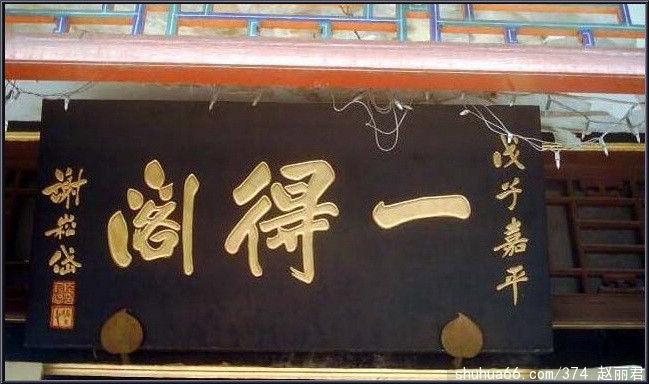 戊子嘉平
一得阁
謝崧岱
shuhua66.com/374 赵丽君